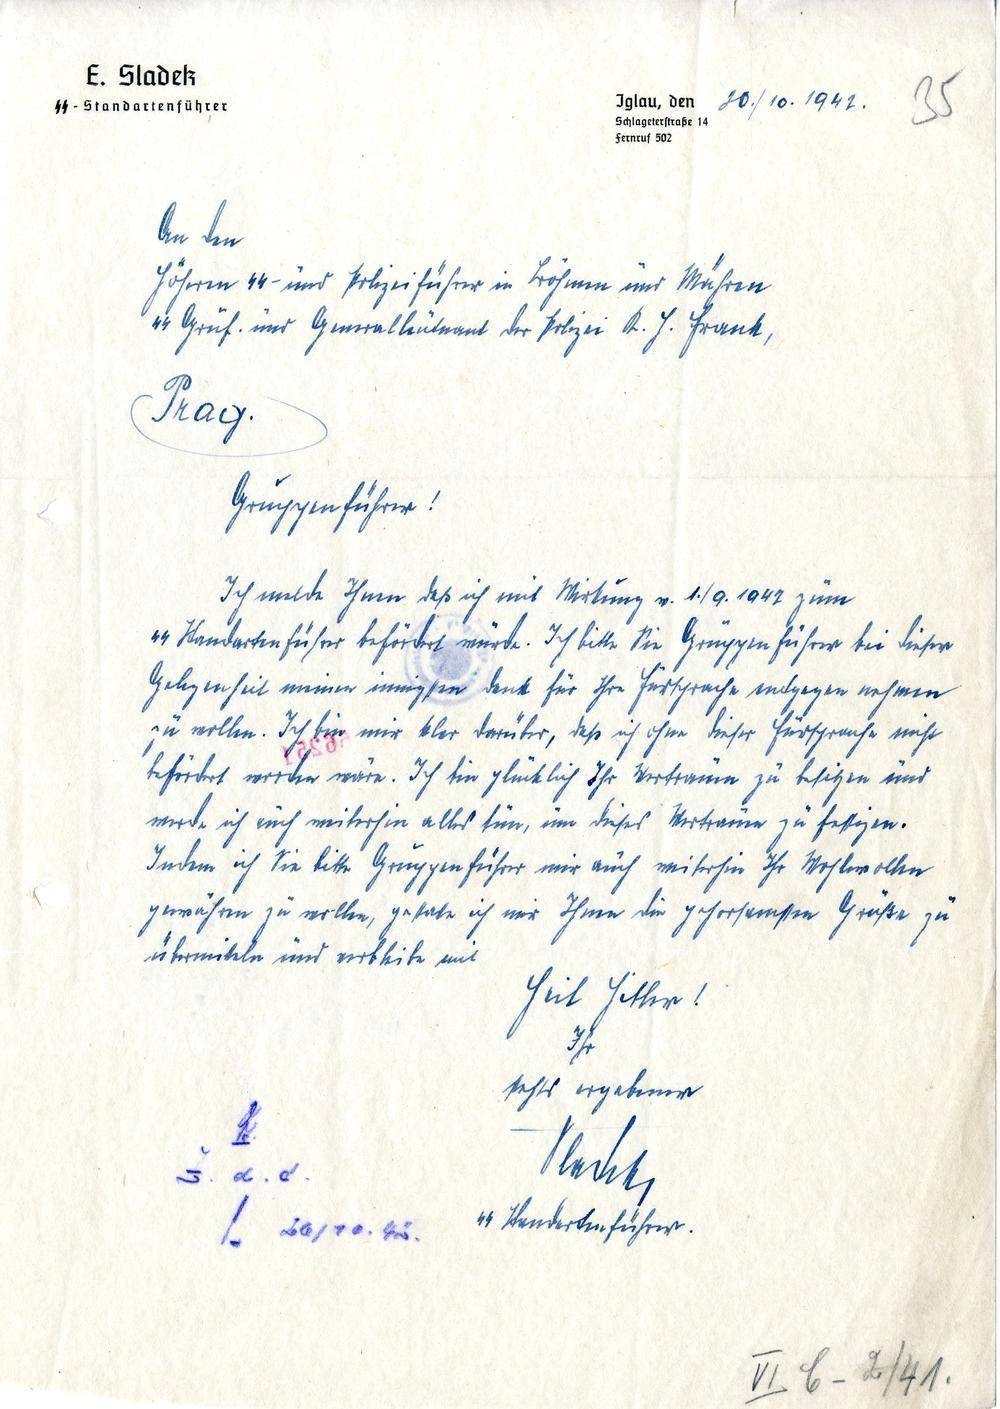 E. Sladek
SS-Standartenführer
Iglau, den 20./10. 1942.
Schlageterstraße 14
Fernruf 502
35
An den
Höheren SS- und Polizeiführer in Böhmen und Mähren
SS Gruf. und Generalleutnant der Polizei K. H. Frank,
Prag.
Gruppenführer!
Ich melde Ihnen daß ich mit Wirkung v. 1./9. 1942 zum
SS Standartenführer befördert wurde. Ich bitte Sie Gruppenführer bei dieser
Gelegenheit meinen innigsten Dank für Ihre Fürsprache entgegen nehmen
zu wollen. Ich bin mir klar darüber, daß ich ohne dieser Fürsprache nicht
befördert worden wäre. Ich bin glücklich Ihr Vertrauen zu besitzen und
werde ich auch weiterhin alles tun, um dieses Vertrauen zu festigen.
Indem ich Sie bitte Gruppenführer mir auch weiterhin Ihr Wohlwollen
gewähren zu wollen, gestate ich mir Ihnen die gehorsamsten Grüße zu
übermitteln und verbleibe mit
Heil Hitler!
Ihr
stehts ergebener
Sladek,
SS Standartenführer.
z. d. A.
26/10. 42.
VI C - 2/41.